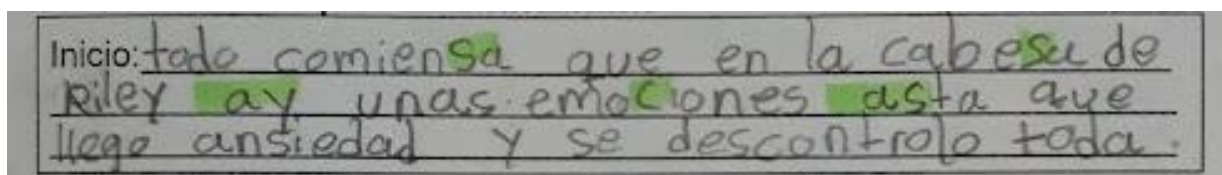 Inicio: todo comiensa que en la cabesa de
Riley ay unas emociones asta que
llego ansiedad y se descontrolo toda.